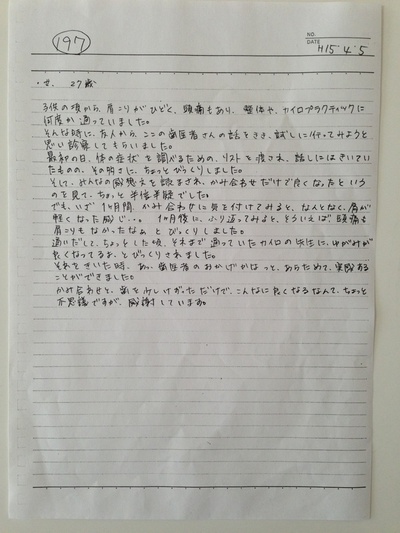 197
NO.
DATE
H15・4・5
・女. 27歳
子供の頃から、肩こりがひどく、頭痛もあり、整体や、カイロプラクティックに
何度か通っていました。
そんな時に、友人から、ここの歯医者さんの話をきき、試しに行ってみようと
思い診察してもらいました。
最初の日、体の症状を調べるための、リストを渡され、話しにはきいてい
たものの、その明さに、ちょっとびっくりしました。
そして、みんなの感想文を読まされ、かみ合わせだけで良くなったという
のを見て、ちょっと半信半疑でした。
でも、いざ1ヶ月間、かみ合わせに気を付けてみると、なんとなく、肩が
軽くなった感じ・・。1ヶ月後に、ふり返ってみると、そういえば頭痛も
肩こりもなかったなぁとびっくりしました。
通いだして、ちょっとした頃、それまで通っていたカイロの先生に、ゆがみが
良くなってるよ、とびっくりされました。
それをきいた時、あっ、歯医者のおかげかなっと、あらためて、実感する
ことができました。
かみ合わせと、歯を少しけずっただけで、こんなに良くなるなんて、ちょっと
不思議ですが、感謝しています。